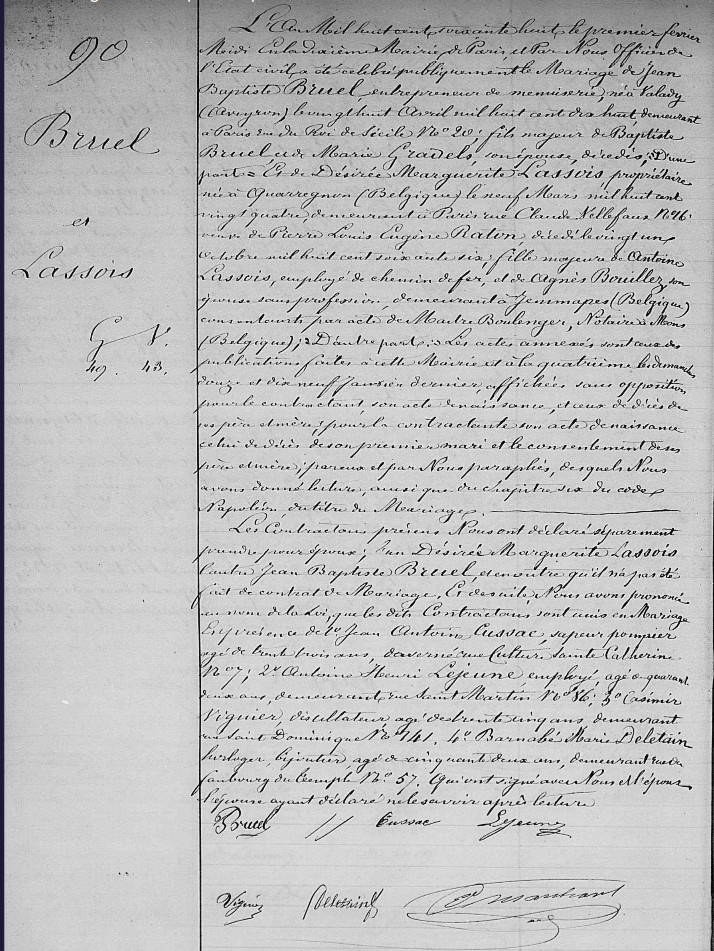 90
Bruel
et
Lassois
G V.
49. 43.
L'An Mil huit cent soixante huit, le premier février
Midi En la dixième Mairie de Paris, et Par Nous Officier de
l'Etat civil, a été célébré publiquement le Mariage de Jean
Baptiste Bruel, entrepreneur de menuiserie, né à Valady
(Aveyron) le vingt huit Avril mil huit cent dix huit, demeurant
à Paris rue du Roi de Sicile No 20; fils majeur de Baptiste
Bruel, et de Marie Gradels, son épouse, décédés; D'une
part = Et de Désirée Marguerite Lassois, propriétaire
née à Quarregnon (Belgique) le neuf Mars mil huit cent
vingt quatre, demeurant à Paris rue Claude Vellefaux No 46
veuve de Pierre Louis Eugène Raton décédé le vingt un
octobre mil huit cent soixante six; fille majeure de Antoine
Lassois, employé de chemin de fer, et de Agnès Bouillez, son
épouse sans profession, demeurant à Jemmapes (Belgique)
consentants par acte de Maitre Boulenger, Notaire à Mons
(Belgique); D'autre part; Les actes annexés sont ceux des
publications faites à cette Mairie et à la quatrième les dimanches
douze et dix neuf janvier dernier affichées sans opposition
pour le contractant, son acte de naissance, et ceux de décès de
ses père et mère; pour la contractante son acte de naissance
celui de décès de son premier mari et le consentement de ses
père et mère; par eux et par Nous paraphés, desquels Nous
avons donné lecture, ainsi que du chapitre six du code
Napoléon du titre du Mariage.
Les Contractans présens Nous ont déclaré séparement
prendre pour époux; l'un Désirée Marguerite Lassois
l'autre Jean Baptiste Bruel, et en outre qu'il n'a pas été
fait de contrat de Mariage. Et de suite Nous avons prononcé
au nom de la Loi, que les dits Contractans sont unis en Mariage
En présence de 1o Jean Antoin Cussac, sapeur pompier
agé de trente trois ans, caserné rue Culture Sainte Catherine
No 7; 2o Antoine Henri Lejeune, employé, agé de quarante
deux ans, demeurant, rue Saint Martin No 86; 3o Casimir
Viguier, distillateur, agé de trente cinq ans, demeurant
rue Saint Dominique No 141. 4o Barnabé Marie Deletain
horloger, bijoutier, agé de cinquante deux ans, demeurant rue du
faubourg du Temple No 57. Qui ont signé avec Nous et l'époux
l'épouse ayant déclaré ne le savoir après lecture
Bruel // Cussac Lejeune
Viguier Deletain Marchant